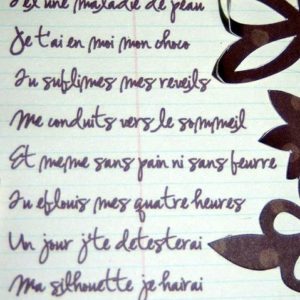 T'es une maladie de peau
Je t'ai en moi mon choco
Tu sublimes mes reveils
Me conduits vers le sommeil
Et meme sans pain ni sans beurre
Tu eflouis mes quatre heures
Un jour j'te detesterai
Ma silhouette je hairai